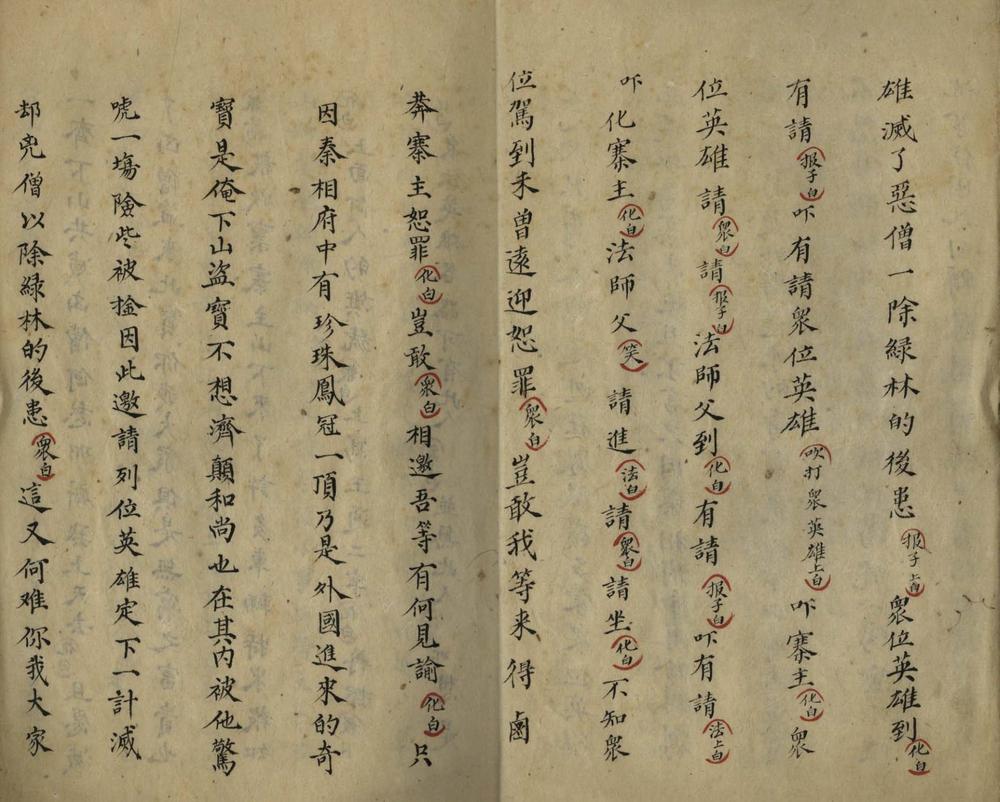 雄滅了惡僧一除綠林的後患報子上白眾位英雄到化白
有請報子白吓有請眾位英雄吹打眾英雄上白吓寨主化白眾
位英雄請眾白請報子白法師父到化白有請報子白吓有請法上白
吓化寨主化白法師父笑請進法白請眾白請坐化白不知眾
位駕到未曾遠迎恕罪眾白豈敢我等來得鹵
莽寨主恕罪化白豈敢眾白相邀吾等有何見諭化白只
因秦相府中有珍珠鳳冠一頂乃是外國進來的奇
寶是俺下山盜寶不想濟顛和尚也在其內被他驚
唬一塲險些被捦因此邀請列位英雄定下一計滅
却兇僧以除綠林的後患眾白這又何难你我大家